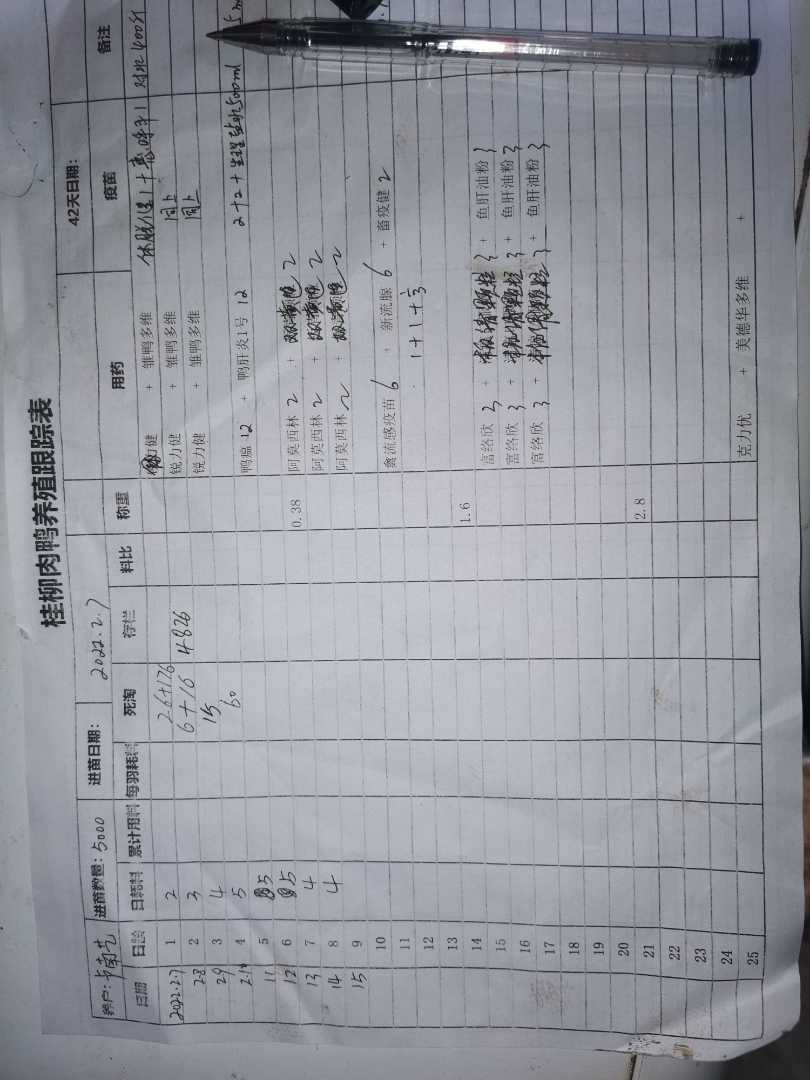 桂柳肉鸭养殖跟踪表
养户: 进苗数量: 5000 进苗日期: 2022.2.7 42天日期:
日期 日龄 日耗料 累计用料 每羽耗料 死淘 存栏 料比 称重 用药 疫苗 备注
2022.2.7 1 2 26+176 力健 + 雏鸭多维
2.8 2 3 6+16 4826 锐力健 + 雏鸭多维 同上
2.9 3 4 15 锐力健 + 雏鸭多维 同上
2.10 4 5 60
11 5 5 鸭瘟 12 + 鸭肝炎1号 12 2+2+生理盐水500ml
12 6 5 0.38 阿莫西林 2 + 2
13 7 4 阿莫西林 2 + 2
14 8 4 阿莫西林 2 + 2
15 9
10 禽流感疫苗 6 + 新流腺 6 + 畜疫健 2
11 1+1+1/3
12
13
14 1.6 富络欣 3 + 3 + 鱼肝油粉 3
15 富络欣 3 + 3 + 鱼肝油粉 3
16 富络欣 3 + 3 + 鱼肝油粉 3
17
18
19
20
21 2.8
22
23
24
25 克力优 + 美德华多维 +